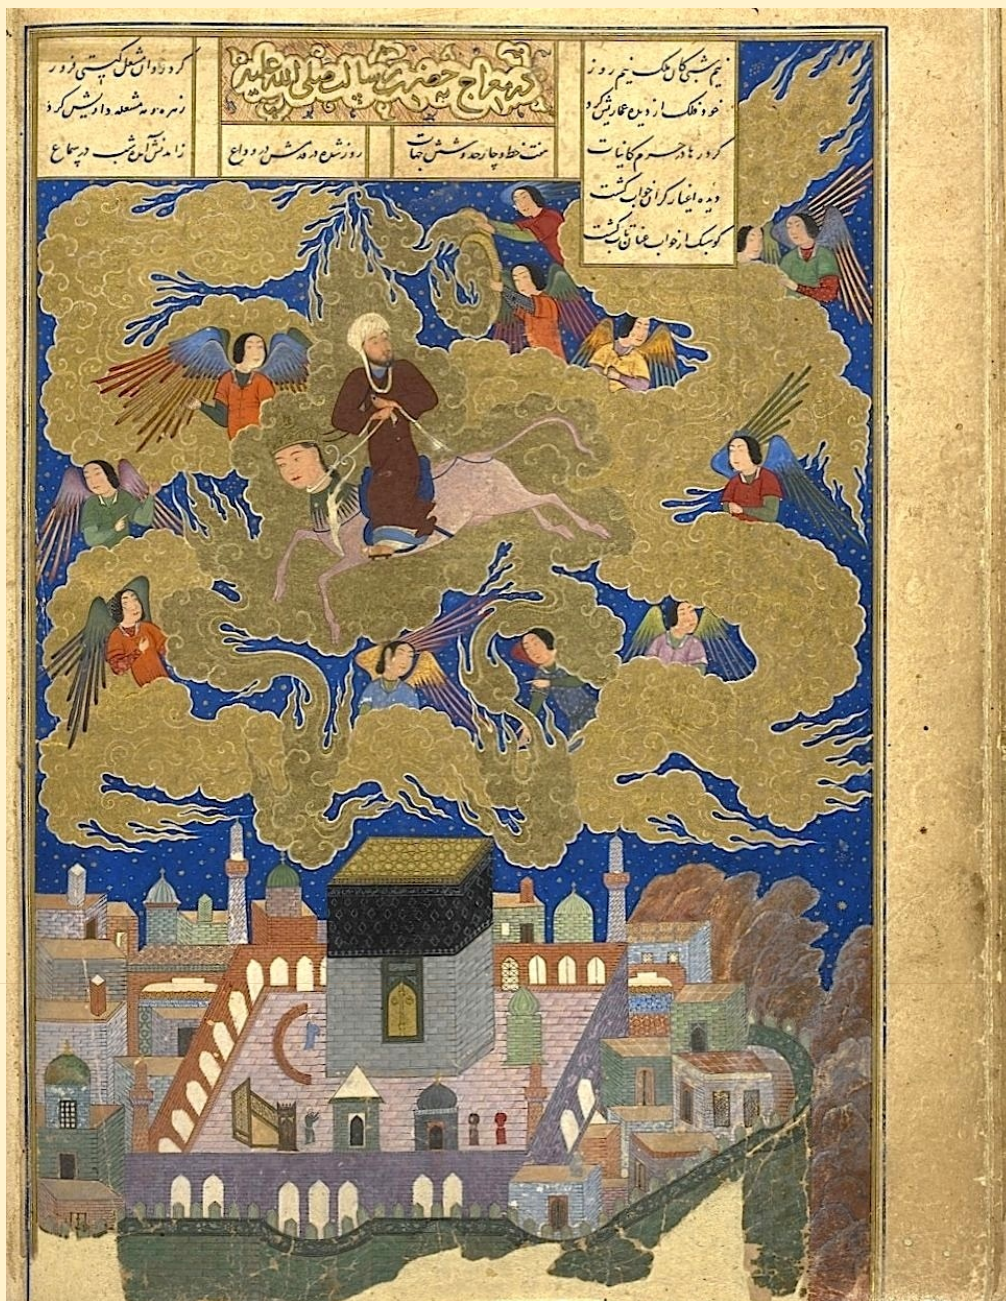 در معراج حضرت رسالت صلی الله علیه
نیم شبی کان ملک نیم روز
کرد روان مشعل گیتی فروز
خود فلک از دیده عماریش کرد
زهره و مه مشعله داریش کرد
کرد رها در حرم کاینات
هفت خط و چار حد و شش جهات
روز شده در قدمش در وداع
زامدنش آمده شب در سماع
دیده اغیار گران خواب گشت
کو سبک از خواب عنان تاب گشت